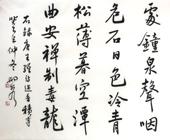 處鐘泉聲咽
危石日色冷青
松薄暮空潭
曲安禅制毒龍
唐王維過香積寺